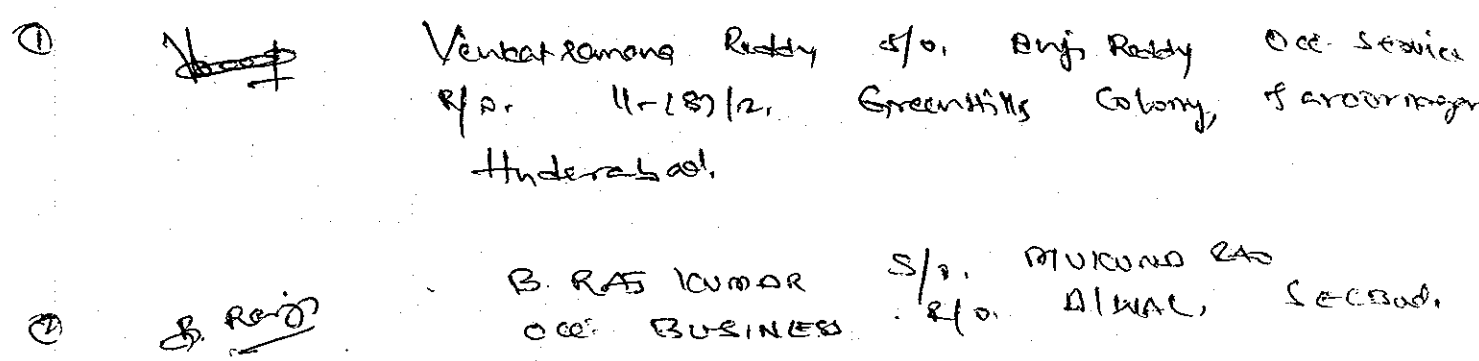 ① Venkat Ramana Reddy S/o. Anji Reddy Occ. Service
R/o. 11-187/2, GreenHills Colony, Saroornagar
Hyderabad.
② B. Raj B. RAJ KUMAR S/o. MUKUND RAO
Occ: BUSINESS R/o. Alwal, Secbad.